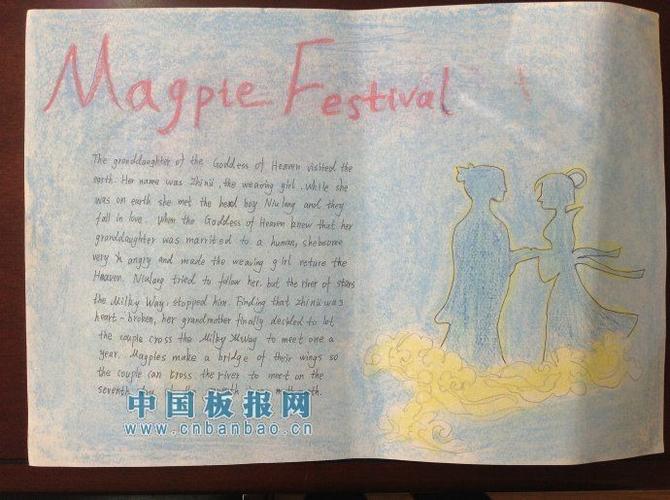 Magpie Festival
The granddaughter of the Goddess of Heaven visited the
earth. Her name was Zhinü, the weaving girl. While she
was on earth she met the head boy Niulang and they
fall in love. When the Goddess of Heaven knew that her
granddaughter was marrited to a human, shebecome
very angry and made the weaving girl reture the
Heaven. Niulang tried to follow her, but the river of stars
the Milky Way, stopped him. Finding that Zhinü was
heart-broken, her grandmother finally decided to let
the couple cross the Milky Way to meet one a
year. Magples make a bridge of their wings so
the couple can cross the river to meet on the
seventh
中国板报网
www.cnbanbao.cn